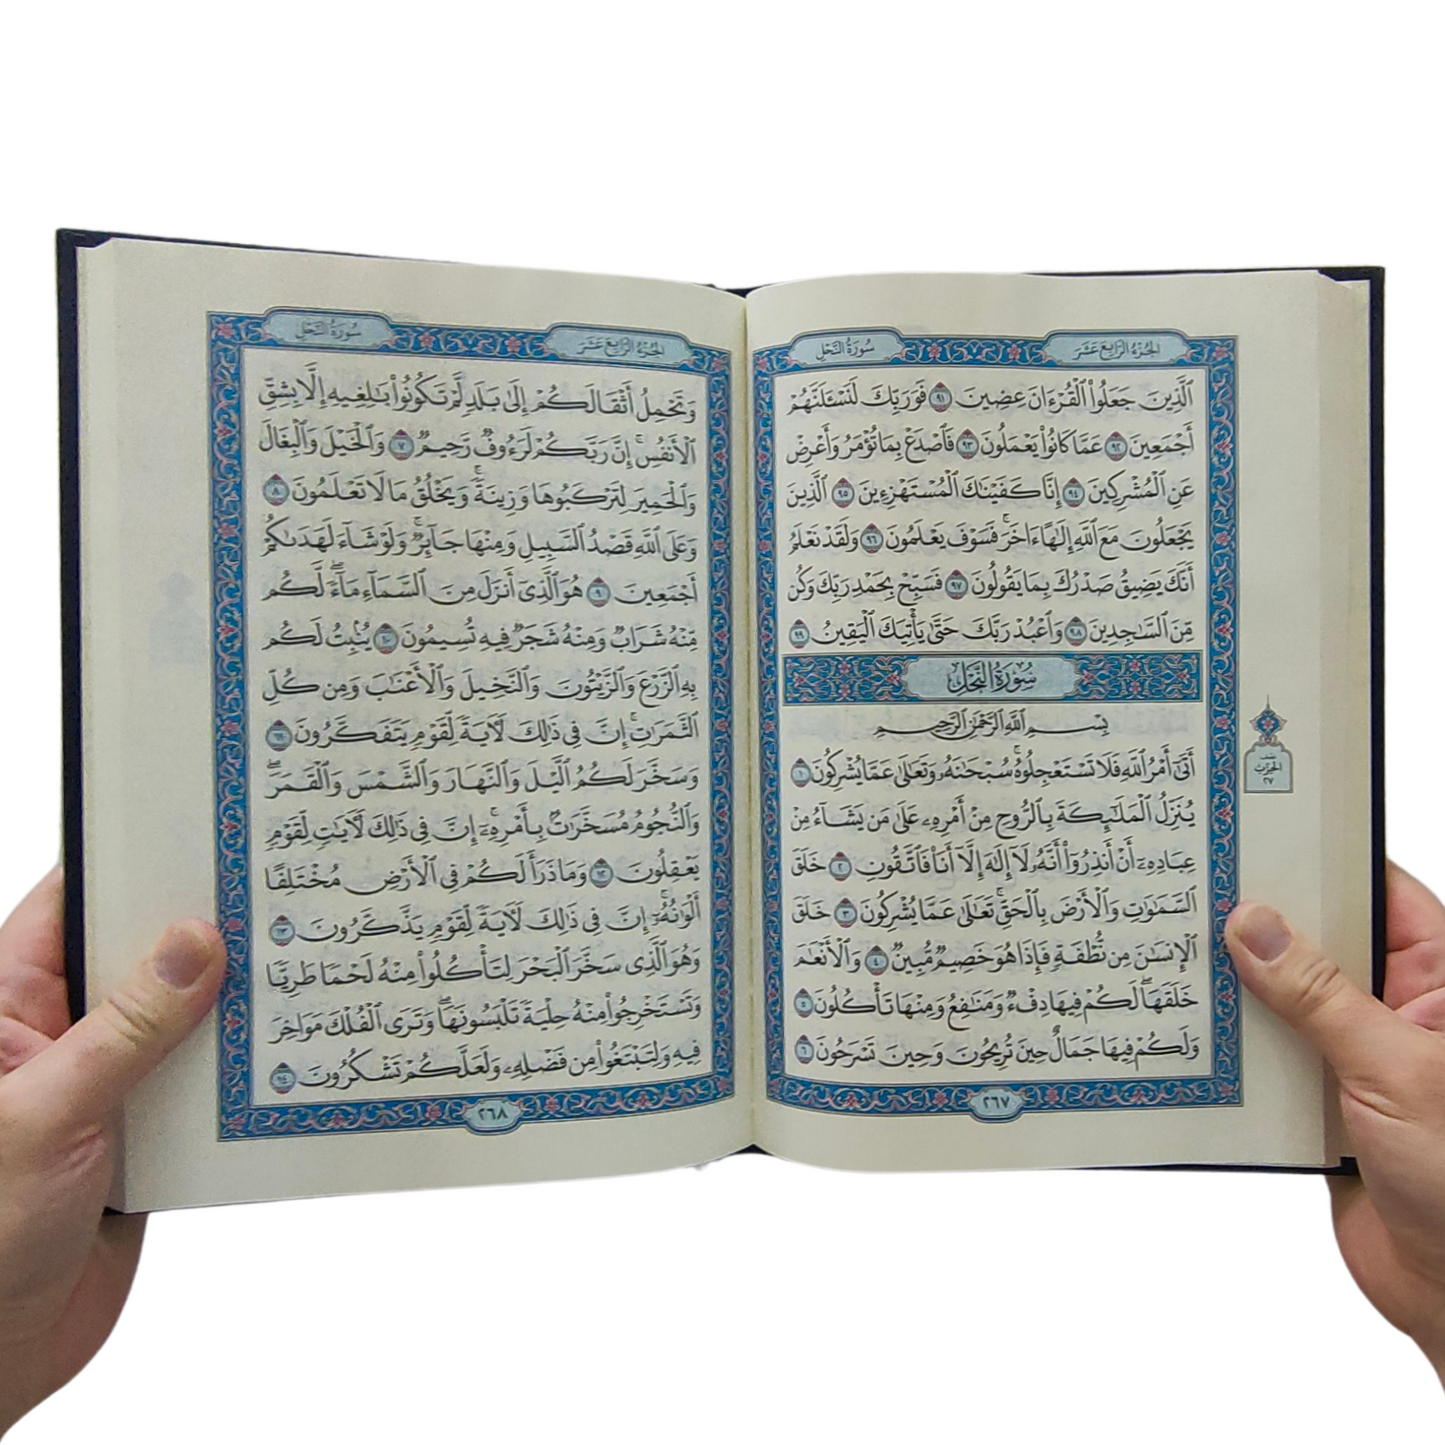 الجزء الرابع عشر
سورة النحل
ٱلَّذِينَ جَعَلُوا۟ ٱلْقُرْءَانَ عِضِينَ ٩١ فَوَرَبِّكَ لَنَسْـَٔلَنَّهُمْ
أَجْمَعِينَ ٩٢ عَمَّا كَانُوا۟ يَعْمَلُونَ ٩٣ فَٱصْدَعْ بِمَا تُؤْمَرُ وَأَعْرِضْ
عَنِ ٱلْمُشْرِكِينَ ٩٤ إِنَّا كَفَيْنَٰكَ ٱلْمُسْتَهْزِءِينَ ٩٥ ٱلَّذِينَ
يَجْعَلُونَ مَعَ ٱللَّهِ إِلَٰهًا ءَاخَرَ ۚ فَسَوْفَ يَعْلَمُونَ ٩٦ وَلَقَدْ نَعْلَمُ
أَنَّكَ يَضِيقُ صَدْرُكَ بِمَا يَقُولُونَ ٩٧ فَسَبِّحْ بِحَمْدِ رَبِّكَ وَكُن
مِّنَ ٱلسَّٰجِدِينَ ٩٨ وَٱعْبُدْ رَبَّكَ حَتَّىٰ يَأْتِيَكَ ٱلْيَقِينُ ٩٩
سُورَةُ النَّحْلِ
بِسْمِ ٱللَّهِ ٱلرَّحْمَٰنِ ٱلرَّحِيمِ
أَتَىٰٓ أَمْرُ ٱللَّهِ فَلَا تَسْتَعْجِلُوهُ ۚ سُبْحَٰنَهُۥ وَتَعَٰلَىٰ عَمَّا يُشْرِكُونَ ١
يُنَزِّلُ ٱلْمَلَٰٓئِكَةَ بِٱلرُّوحِ مِنْ أَمْرِهِۦ عَلَىٰ مَن يَشَآءُ مِنْ
عِبَادِهِۦٓ أَنْ أَنذِرُوٓا۟ أَنَّهُۥ لَآ إِلَٰهَ إِلَّآ أَنَا۠ فَٱتَّقُونِ ٢ خَلَقَ
ٱلسَّمَٰوَٰتِ وَٱلْأَرْضَ بِٱلْحَقِّ ۚ تَعَٰلَىٰ عَمَّا يُشْرِكُونَ ٣ خَلَقَ
ٱلْإِنسَٰنَ مِن نُّطْفَةٍ فَإِذَا هُوَ خَصِيمٌ مُّبِينٌ ٤ وَٱلْأَنْعَٰمَ
خَلَقَهَا ۗ لَكُمْ فِيهَا دِفْءٌ وَمَنَٰفِعُ وَمِنْهَا تَأْكُلُونَ ٥
وَلَكُمْ فِيهَا جَمَالٌ حِينَ تُرِيحُونَ وَحِينَ تَسْرَحُونَ ٦
٢٦٧
نصف
الحزب
٢٧
الجزء الرابع عشر
سورة النحل
وَتَحْمِلُ أَثْقَالَكُمْ إِلَىٰ بَلَدٍ لَّمْ تَكُونُوا۟ بَٰلِغِيهِ إِلَّا بِشِقِّ
ٱلْأَنفُسِ ۚ إِنَّ رَبَّكُمْ لَرَءُوفٌ رَّحِيمٌ ٧ وَٱلْخَيْلَ وَٱلْبِغَالَ
وَٱلْحَمِيرَ لِتَرْكَبُوهَا وَزِينَةً ۚ وَيَخْلُقُ مَا لَا تَعْلَمُونَ ٨
وَعَلَى ٱللَّهِ قَصْدُ ٱلسَّبِيلِ وَمِنْهَا جَآئِرٌ ۚ وَلَوْ شَآءَ لَهَدَىٰكُمْ
أَجْمَعِينَ ٩ هُوَ ٱلَّذِىٓ أَنزَلَ مِنَ ٱلسَّمَآءِ مَآءً ۖ لَّكُم
مِّنْهُ شَرَابٌ وَمِنْهُ شَجَرٌ فِيهِ تُسِيمُونَ ١٠ يُنۢبِتُ لَكُم
بِهِ ٱلزَّرْعَ وَٱلزَّيْتُونَ وَٱلنَّخِيلَ وَٱلْأَعْنَٰبَ وَمِن كُلِّ
ٱلثَّمَرَٰتِ ۗ إِنَّ فِى ذَٰلِكَ لَءَايَةً لِّقَوْمٍ يَتَفَكَّرُونَ ١١
وَسَخَّرَ لَكُمُ ٱلَّيْلَ وَٱلنَّهَارَ وَٱلشَّمْسَ وَٱلْقَمَرَ ۖ
وَٱلنُّجُومُ مُسَخَّرَٰتٌۢ بِأَمْرِهِۦٓ ۗ إِنَّ فِى ذَٰلِكَ لَءَايَٰتٍ لِّقَوْمٍ
يَعْقِلُونَ ١٢ وَمَا ذَرَأَ لَكُمْ فِى ٱلْأَرْضِ مُخْتَلِفًا
أَلْوَٰنُهُۥٓ ۗ إِنَّ فِى ذَٰلِكَ لَءَايَةً لِّقَوْمٍ يَذَّكَّرُونَ ١٣
وَهُوَ ٱلَّذِى سَخَّرَ ٱلْبَحْرَ لِتَأْكُلُوا۟ مِنْهُ لَحْمًا طَرِيًّا
وَتَسْتَخْرِجُوا۟ مِنْهُ حِلْيَةً تَلْبَسُونَهَا ۖ وَتَرَى ٱلْفُلْكَ مَوَاخِرَ
فِيهِ وَلِتَبْتَغُوا۟ مِن فَضْلِهِۦ وَلَعَلَّكُمْ تَشْكُرُونَ ١٤
٢٦٨